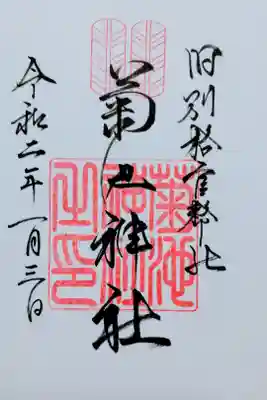 旧別格官幣社
菊池神社
菊池神社之印
令和二年一月三日